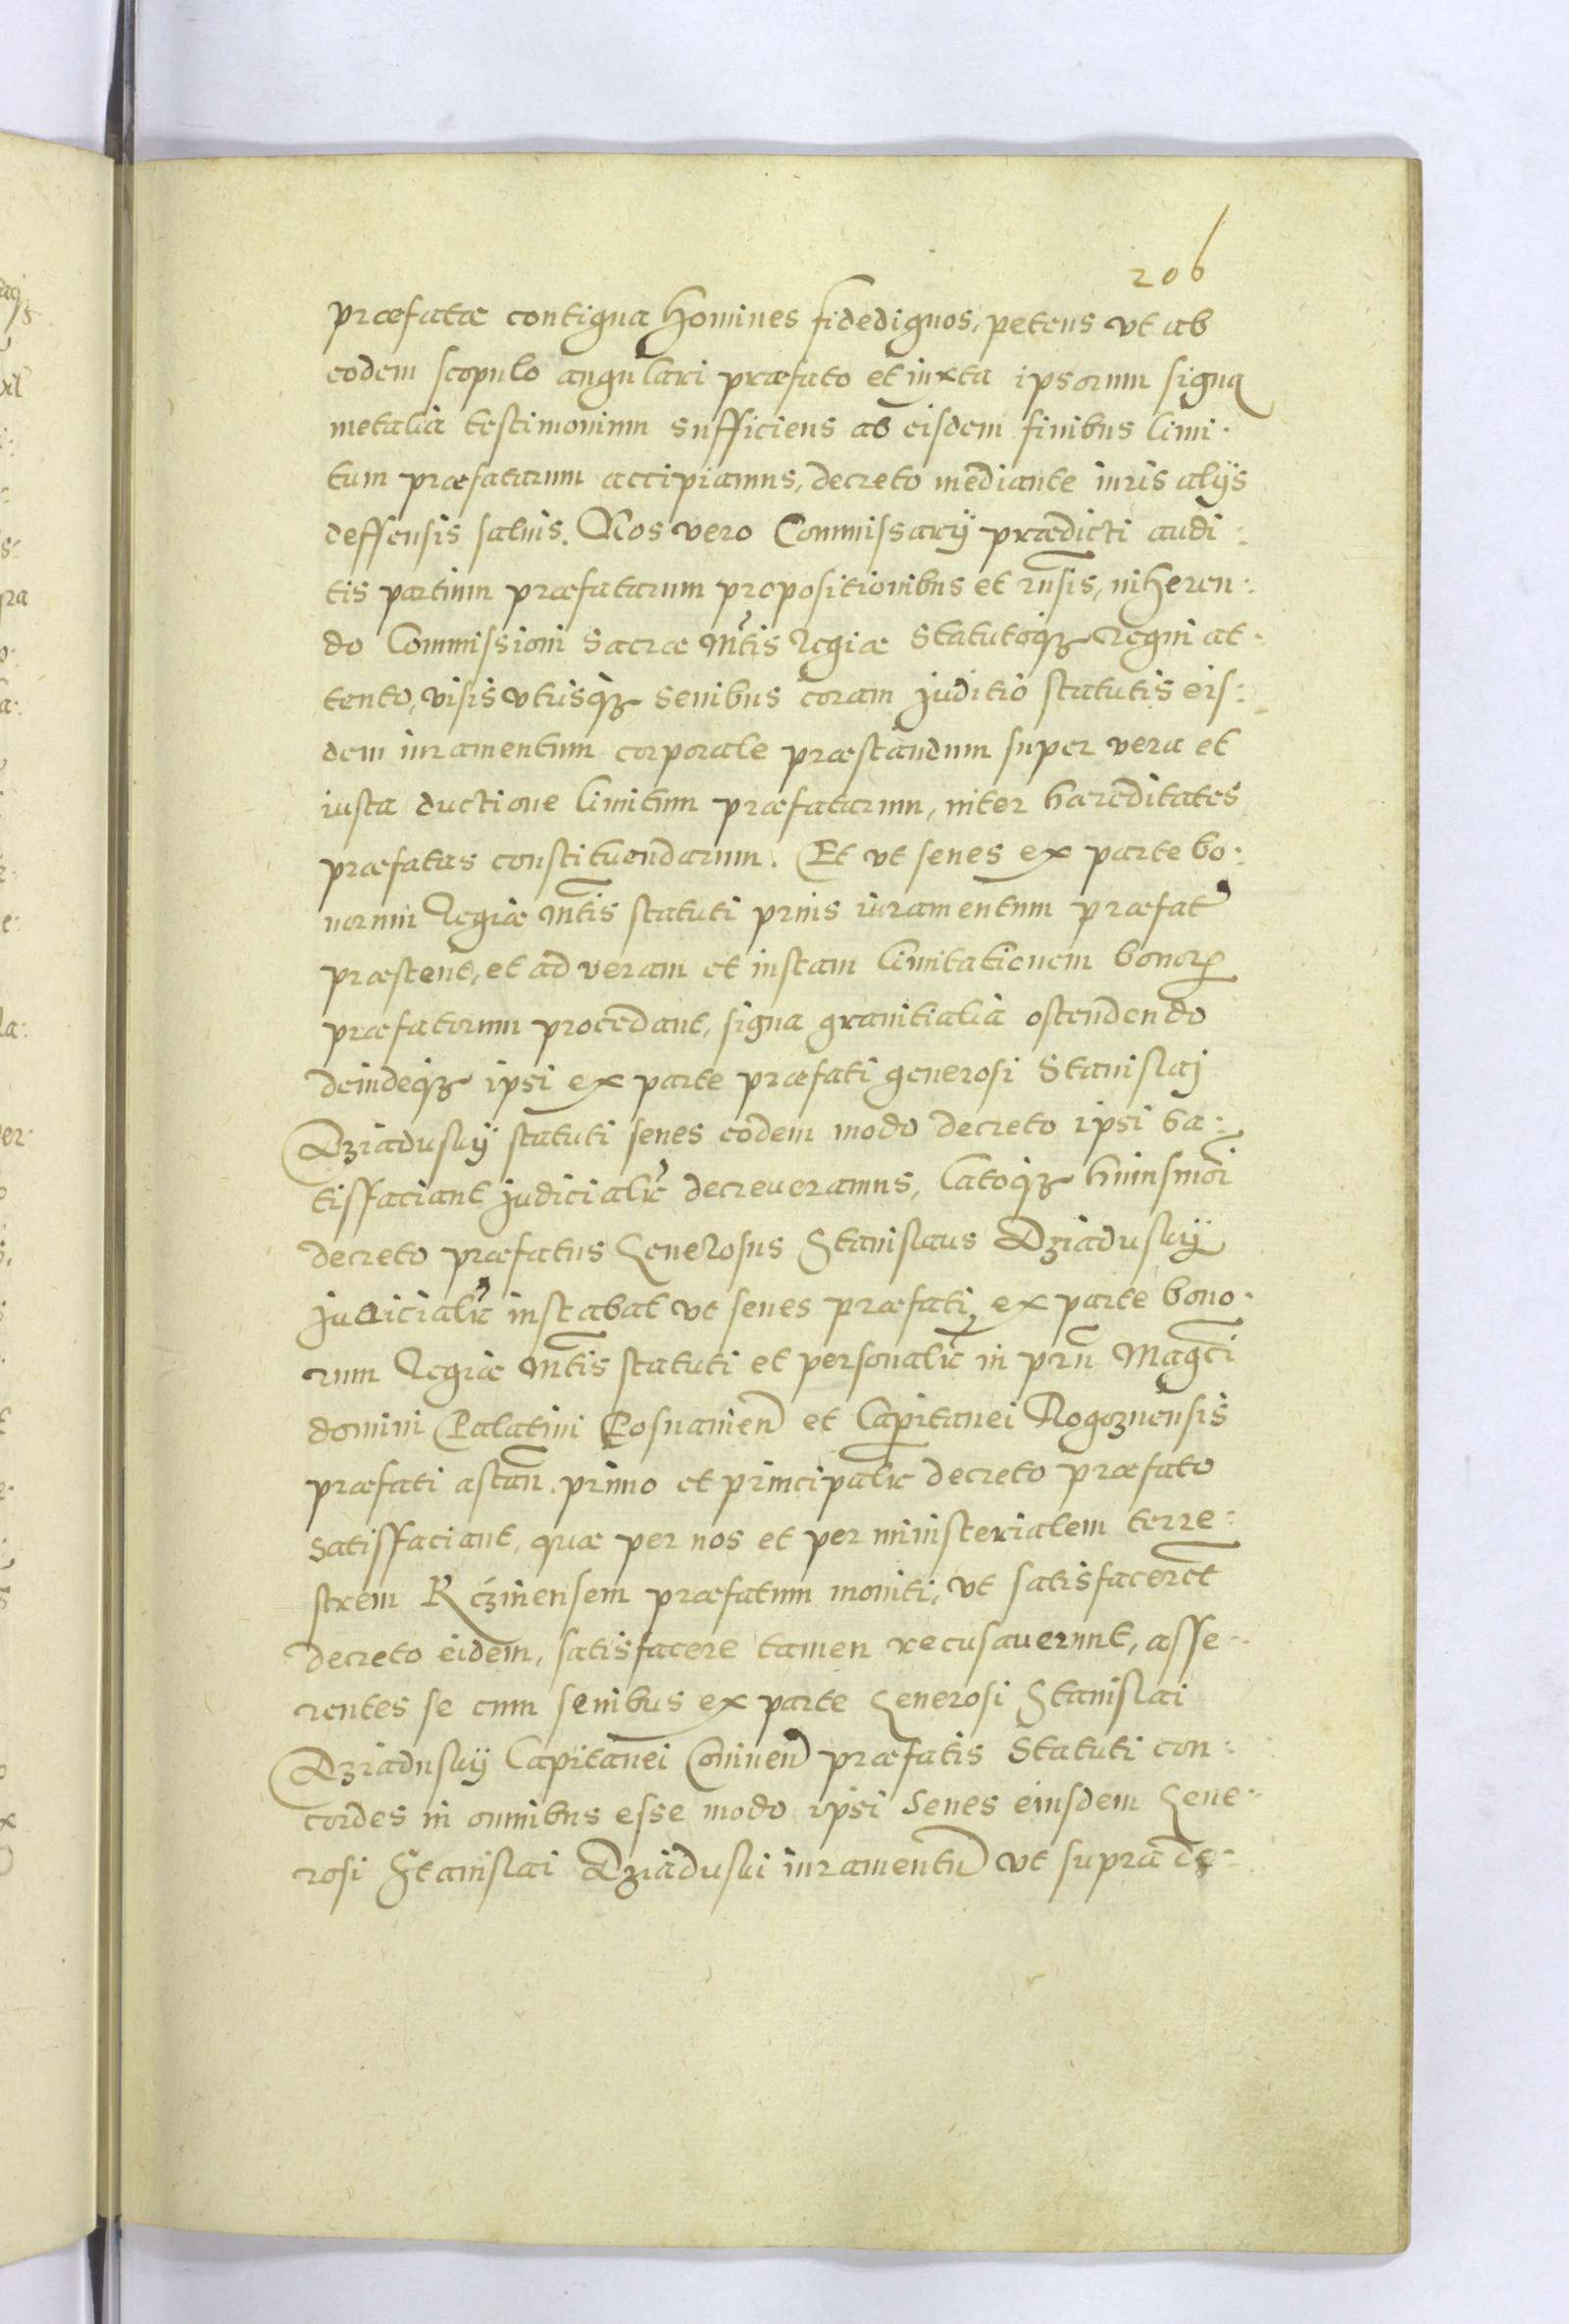 206
præfatæ contigua homines fidedignos, petens vt ab
eodem scopulo angulari præfato et iuxta ipsorum signa
metalia testimonium sufficiens ab eisdem finibus limi·
tum præfatarum accipiamus, decreto mediante iuris alijs
deffensis saluis. Nos vero Commissarij prædicti audi:
tis partium præfatarum propositionibus et rn̄sis, inheren:
do Commissioni Sacræ Mtis Regiæ Statutoqꝫ Regni at:
tento, visis vtrisqꝫ senibus coram Juditio statutis eis:
dem iuramentum corporale præstandum super vera et
iusta ductione limitum præfatarum, inter hæreditates
præfatas constituendarum. Et vt senes ex parte bo:
norum Regiæ Mtis statuti prius iuramentum præfat
præstent, et ad veram et iustam limitationem bonorꝝ
præfatorum procedant, signa granitialia ostendendo
deindeqꝫ ipsi ex parte præfati generosi Stanislaj
Dziadusky statuti senes eodem modo decreto ipsi sa:
tisfaciant Judicialr decreueramus, latoqꝫ huiusmōi
decreto præfatus Generosus Stanislaus Dziadusky
Judicialr instabat vt senes præfati, ex parte bono:
rum Regiæ Mtis statuti et personalr in prn̄ Magci
domini Palatini Posnanien et Capitanei Rogoznensis
præfati astan̄. primo et principalr decreto præfato
satisfaciant, quæ per nos et per ministerialem terre:
strem Kczinensem præfatum moniti, vt satisfacerēt
decreto eidem, satisfacere tamen recusauerunt, asse:
rentes se cum senibus ex parte Generosi Stanislai
Dziadusky Capitanei Coninen præfatis statuti con:
cordes in omnibus esse modo ipsi Senes eiusdem Gene:
rosi Stanislai Dziaduski iuramentū vt supra de: